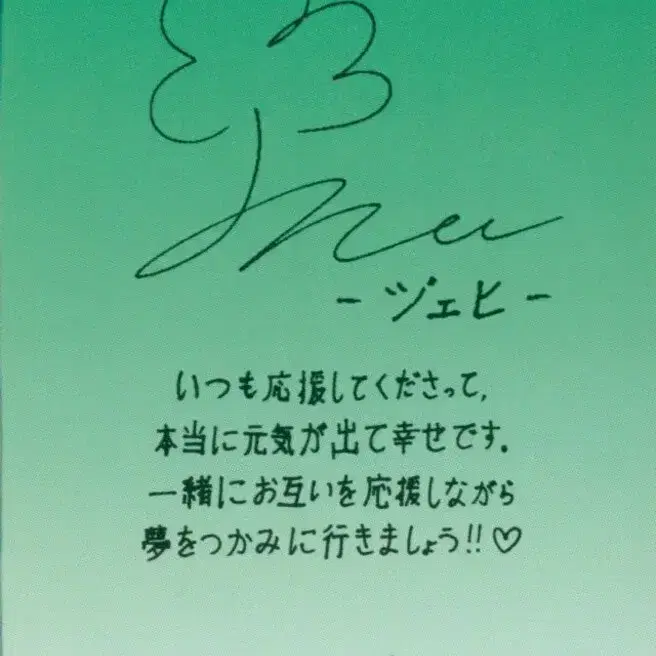 -ジェヒ-
いつも応援してくださって,
本当に元気が出て幸せです.
一緒にお互いを応援しながら
夢をつかみに行きましょう!!♡